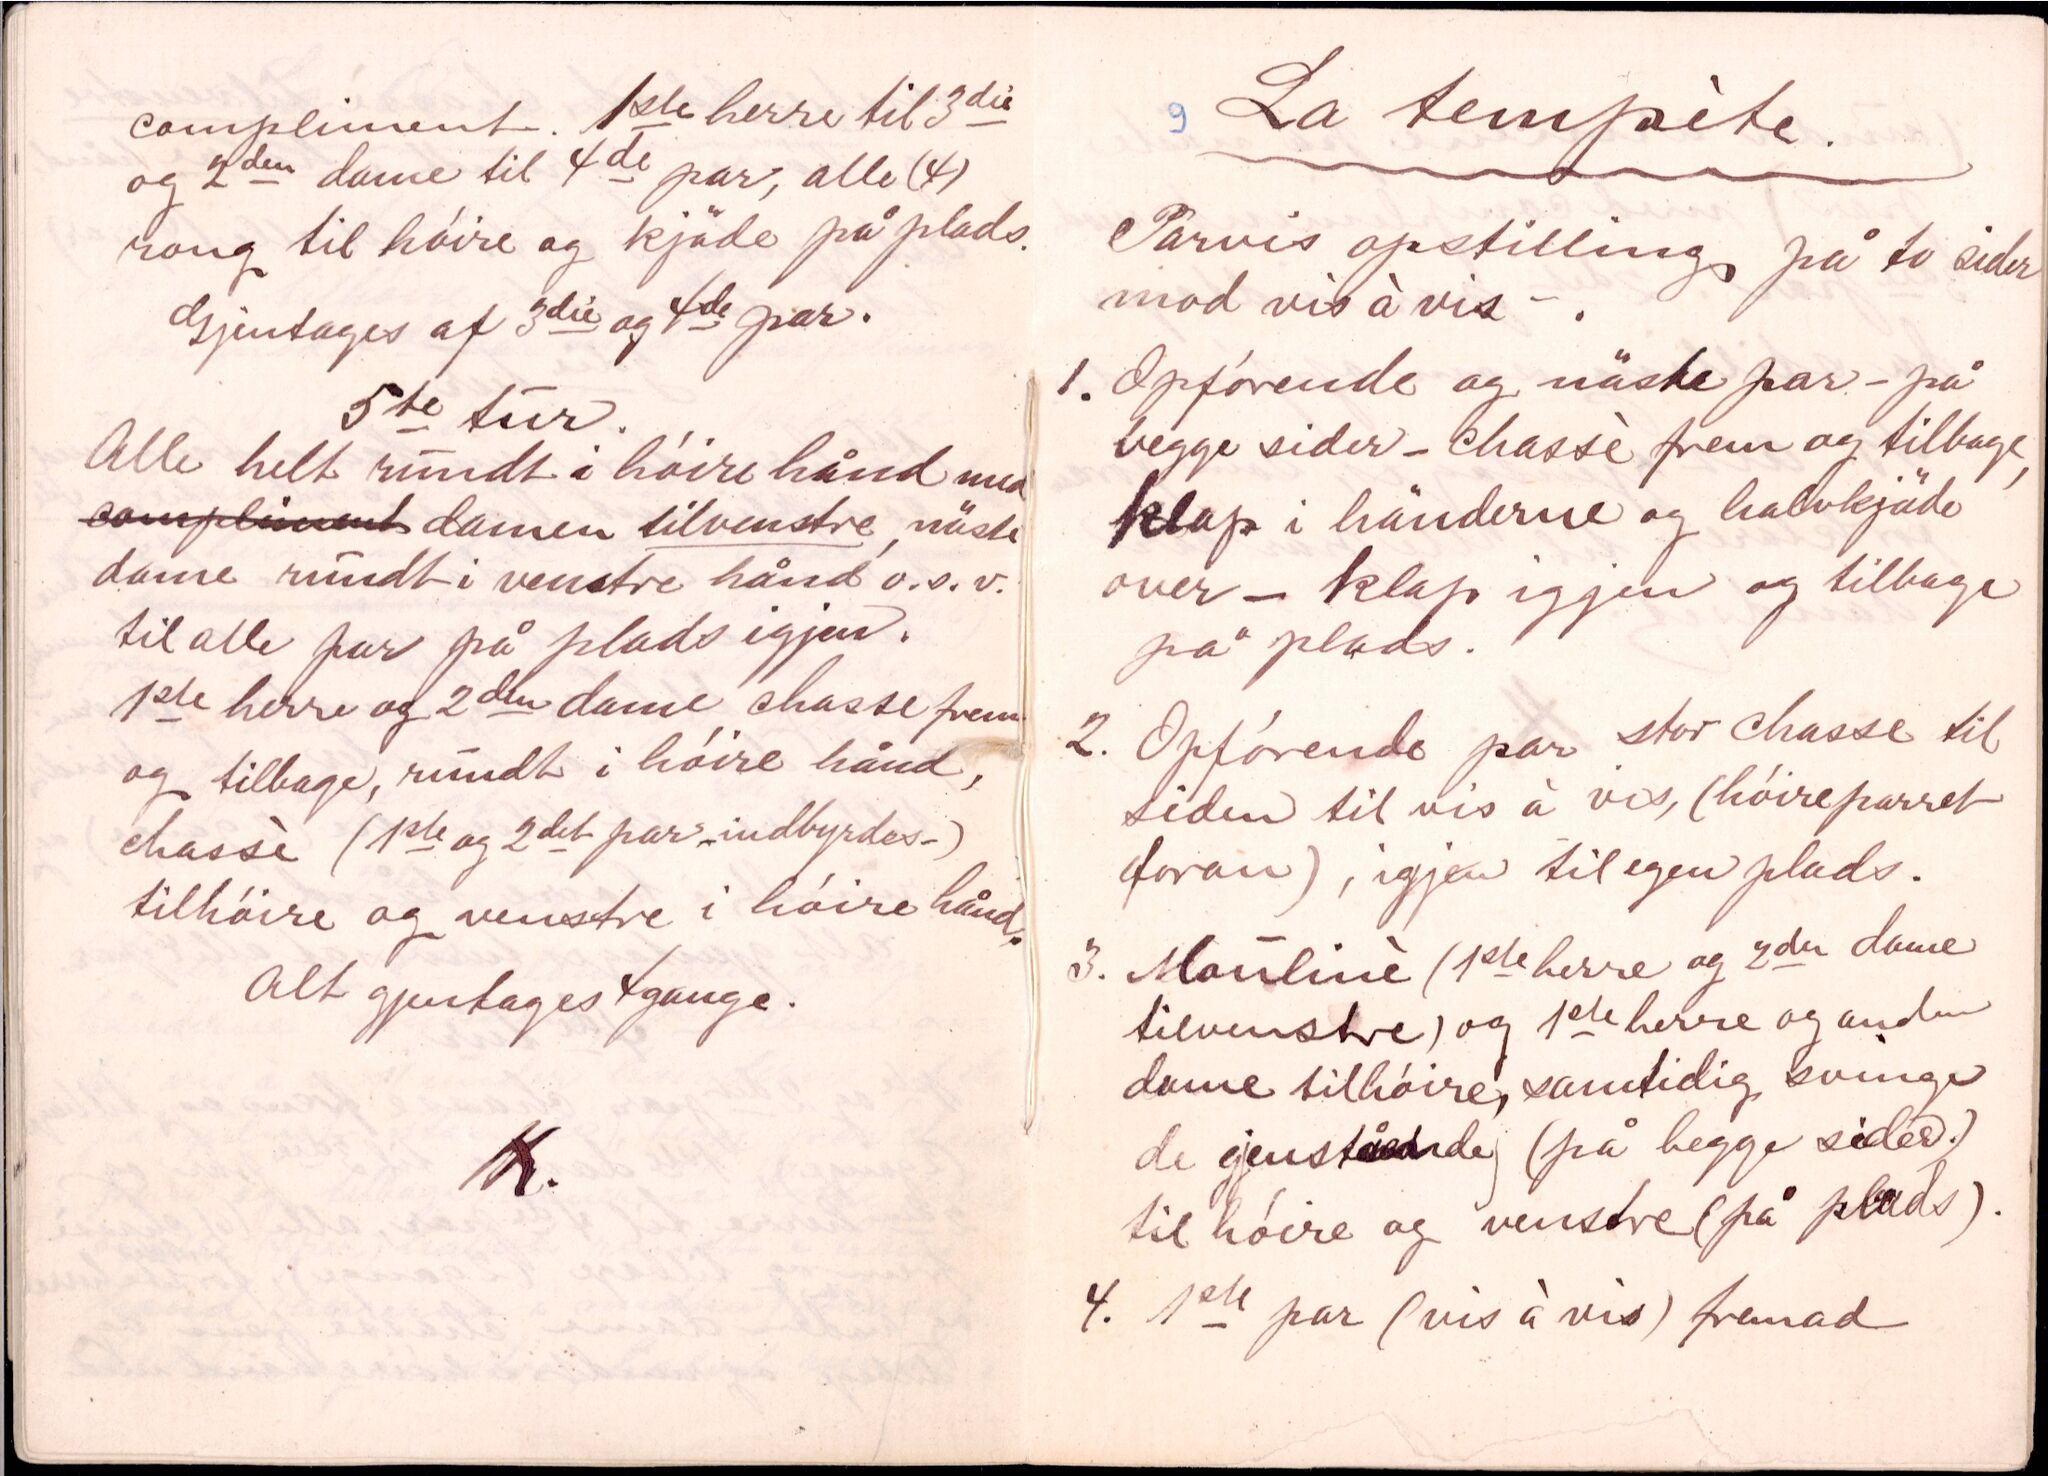 compliment. 1ste herre til 3die
og 2den dame til 4de par, alle (4)
rong til hóire og kjäde på plads.
Gjentages af 3die og 4de par.
5te tur.
Alle helt rundt i hóire hånd med
compliment damen tilvenstre, näste
dame rundt i venstre hånd o.s.v.
til alle par på plads igjen.
1ste herre og 2den dame chasse frem
og tilbage, rundt i hóire hånd,
chassè (1ste og 2det par - indbyrdes -)
tilhóire og venstre i hóire hånd.
Alt gjentages 4 gange.
K.
9 La tempète.
Parvis opstilling på to sider
mod vis à vis - .
1. Opfórende og näste par - på
begge sider - chassè frem og tilbage,
klap i händerne og halvkjäde
over - klap igjen og tilbage
på plads.
2. Opfórende par stor chasse til
siden til vis à vis, (hóire parret
foran), igjen til egen plads.
3. Moulinè (1ste herre og 2den dame
tilvenstre) og 1ste herre og anden
dame tilhóire, samtidig svinge
de gjenstående (på begge sider.)
til hóire og venstre (på plads).
4. 1ste par (vis à vis) fremad